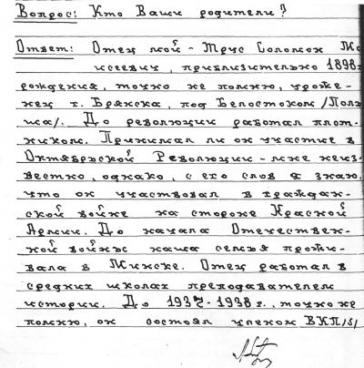 Вопрос: Кто Ваши родители?
Ответ: Отец мой - Трус Соломон Мо
исеевич, приблизительно 1898г.
рождения, точно не помню, уроже-
нец г. Брянска, под Белостоком /Поль
ша/. До революции работал плот-
ником. Принимал ли он участие в
Октябрьской Революции - мне неиз-
вестно, однако, с его слов я знаю,
что он участвовал в граждан-
ской войне на стороне Красной
Армии. До начала Отечествен-
ной войны наша семья прожи-
вала в Минске. Отец работал в
средних школах преподавателем
истории. До 1937-1938 г., точно не
помню, он состоял членом ВКП/б/